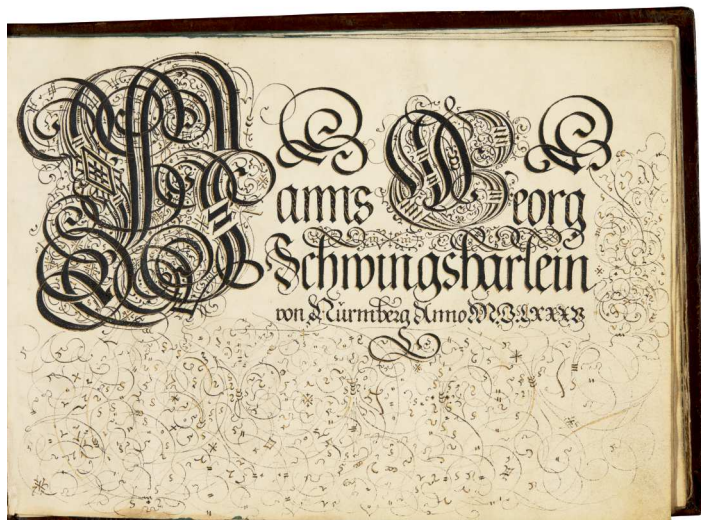 Hanns Georg
Schwingshärlein
von Nürmberg Anno M.V.LXXXV